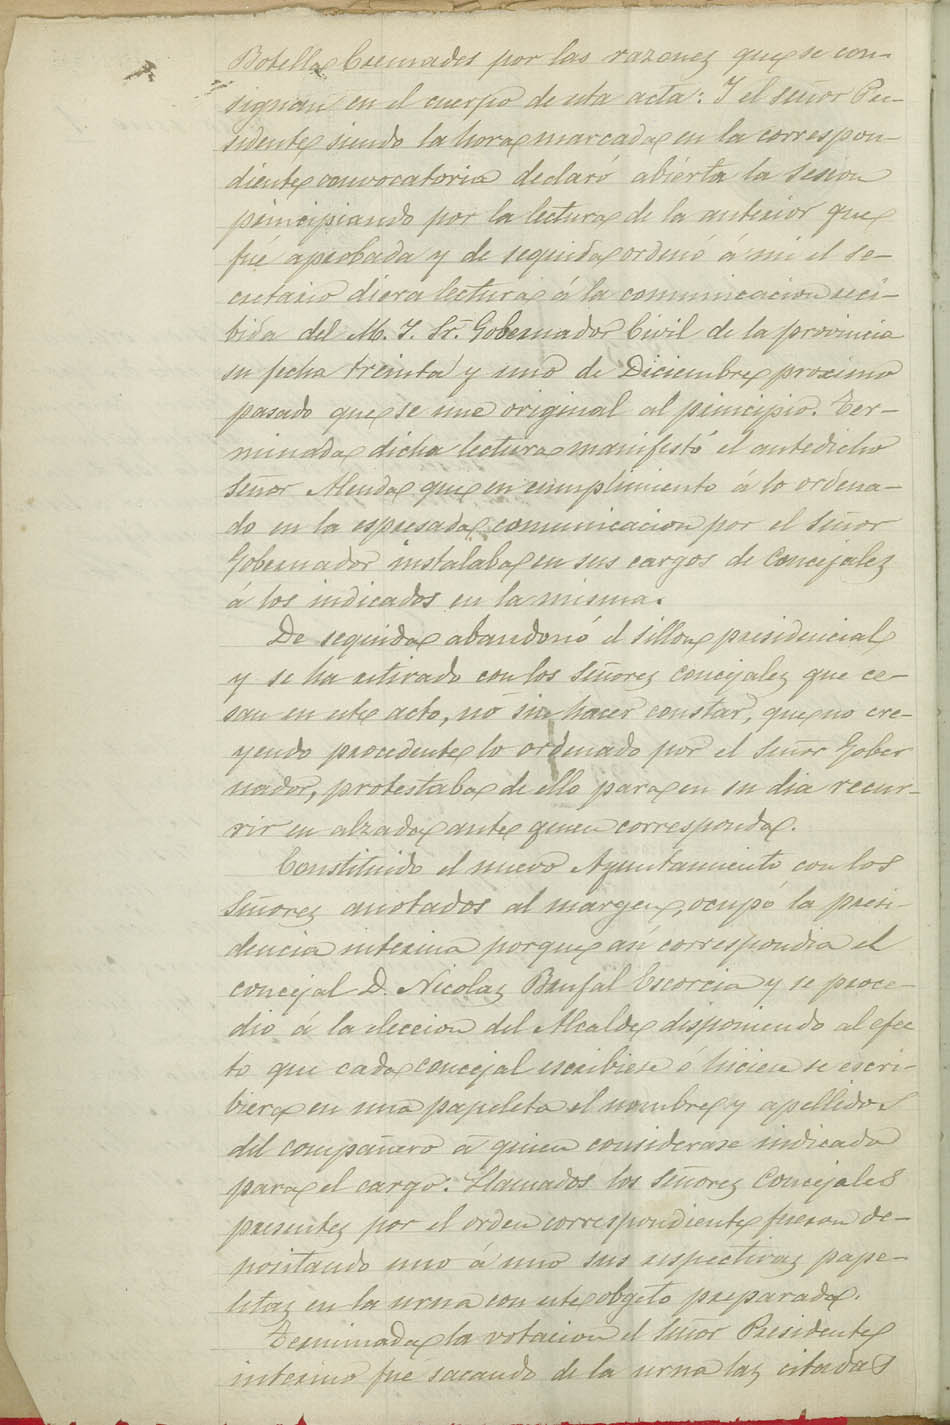 Botella Cremades por las razones que se con-
signan en el cuerpo de esta acta: Y el señor Pre-
sidente siendo la hora marcada en la correspon-
diente convocatoria declaró abierta la sesion
principiando por la lectura de la anterior que
fué aprobada y de seguida ordenó á mi el se-
cretario diera lectura á la comunicacion reci-
bida del M. I. Sr. Gobernador Civil de la provincia
su fecha treinta y uno de Diciembre proximo
pasado que se une original al principio. Ter-
minada dicha lectura manifestó el antedicho
Señor Alenda que en cumplimiento á lo ordena-
do en la espresada comunicacion por el Señor
Gobernador instalaba en sus cargos de Concejales
á los indicados en la misma.
De seguida abandonó el sillon presidencial
y se ha retirado con los Señores Concejales que ce-
san en este acto, no sin hacer constar, que no cre-
yendo procedente lo ordenado por el Señor Gober
nador, protestaba de ello para en su dia recur-
rir en alzada ante quien corresponda.
Constituido el nuevo Ayuntamiento con los
Señores anotados al margen, ocupó la presi-
dencia interina porque asi correspondia el
concejal D. Nicolas Brufal Escorcia y se proce-
dio á la eleccion del Alcalde disponiendo al efec
to que cada concejal escribiese ó hiciese se escri-
biera en una papeleta el nombre y apellidos
del compañero á quien considerase indicado
para el cargo. Llamados los Señores Concejales
presentes por el orden correspondiente fueron de-
positando uno á uno sus respectivas pape-
letas en la urna con este obgeto preparada.
Terminada la votacion el Señor Presidente
interino fué sacando de la urna las citadas